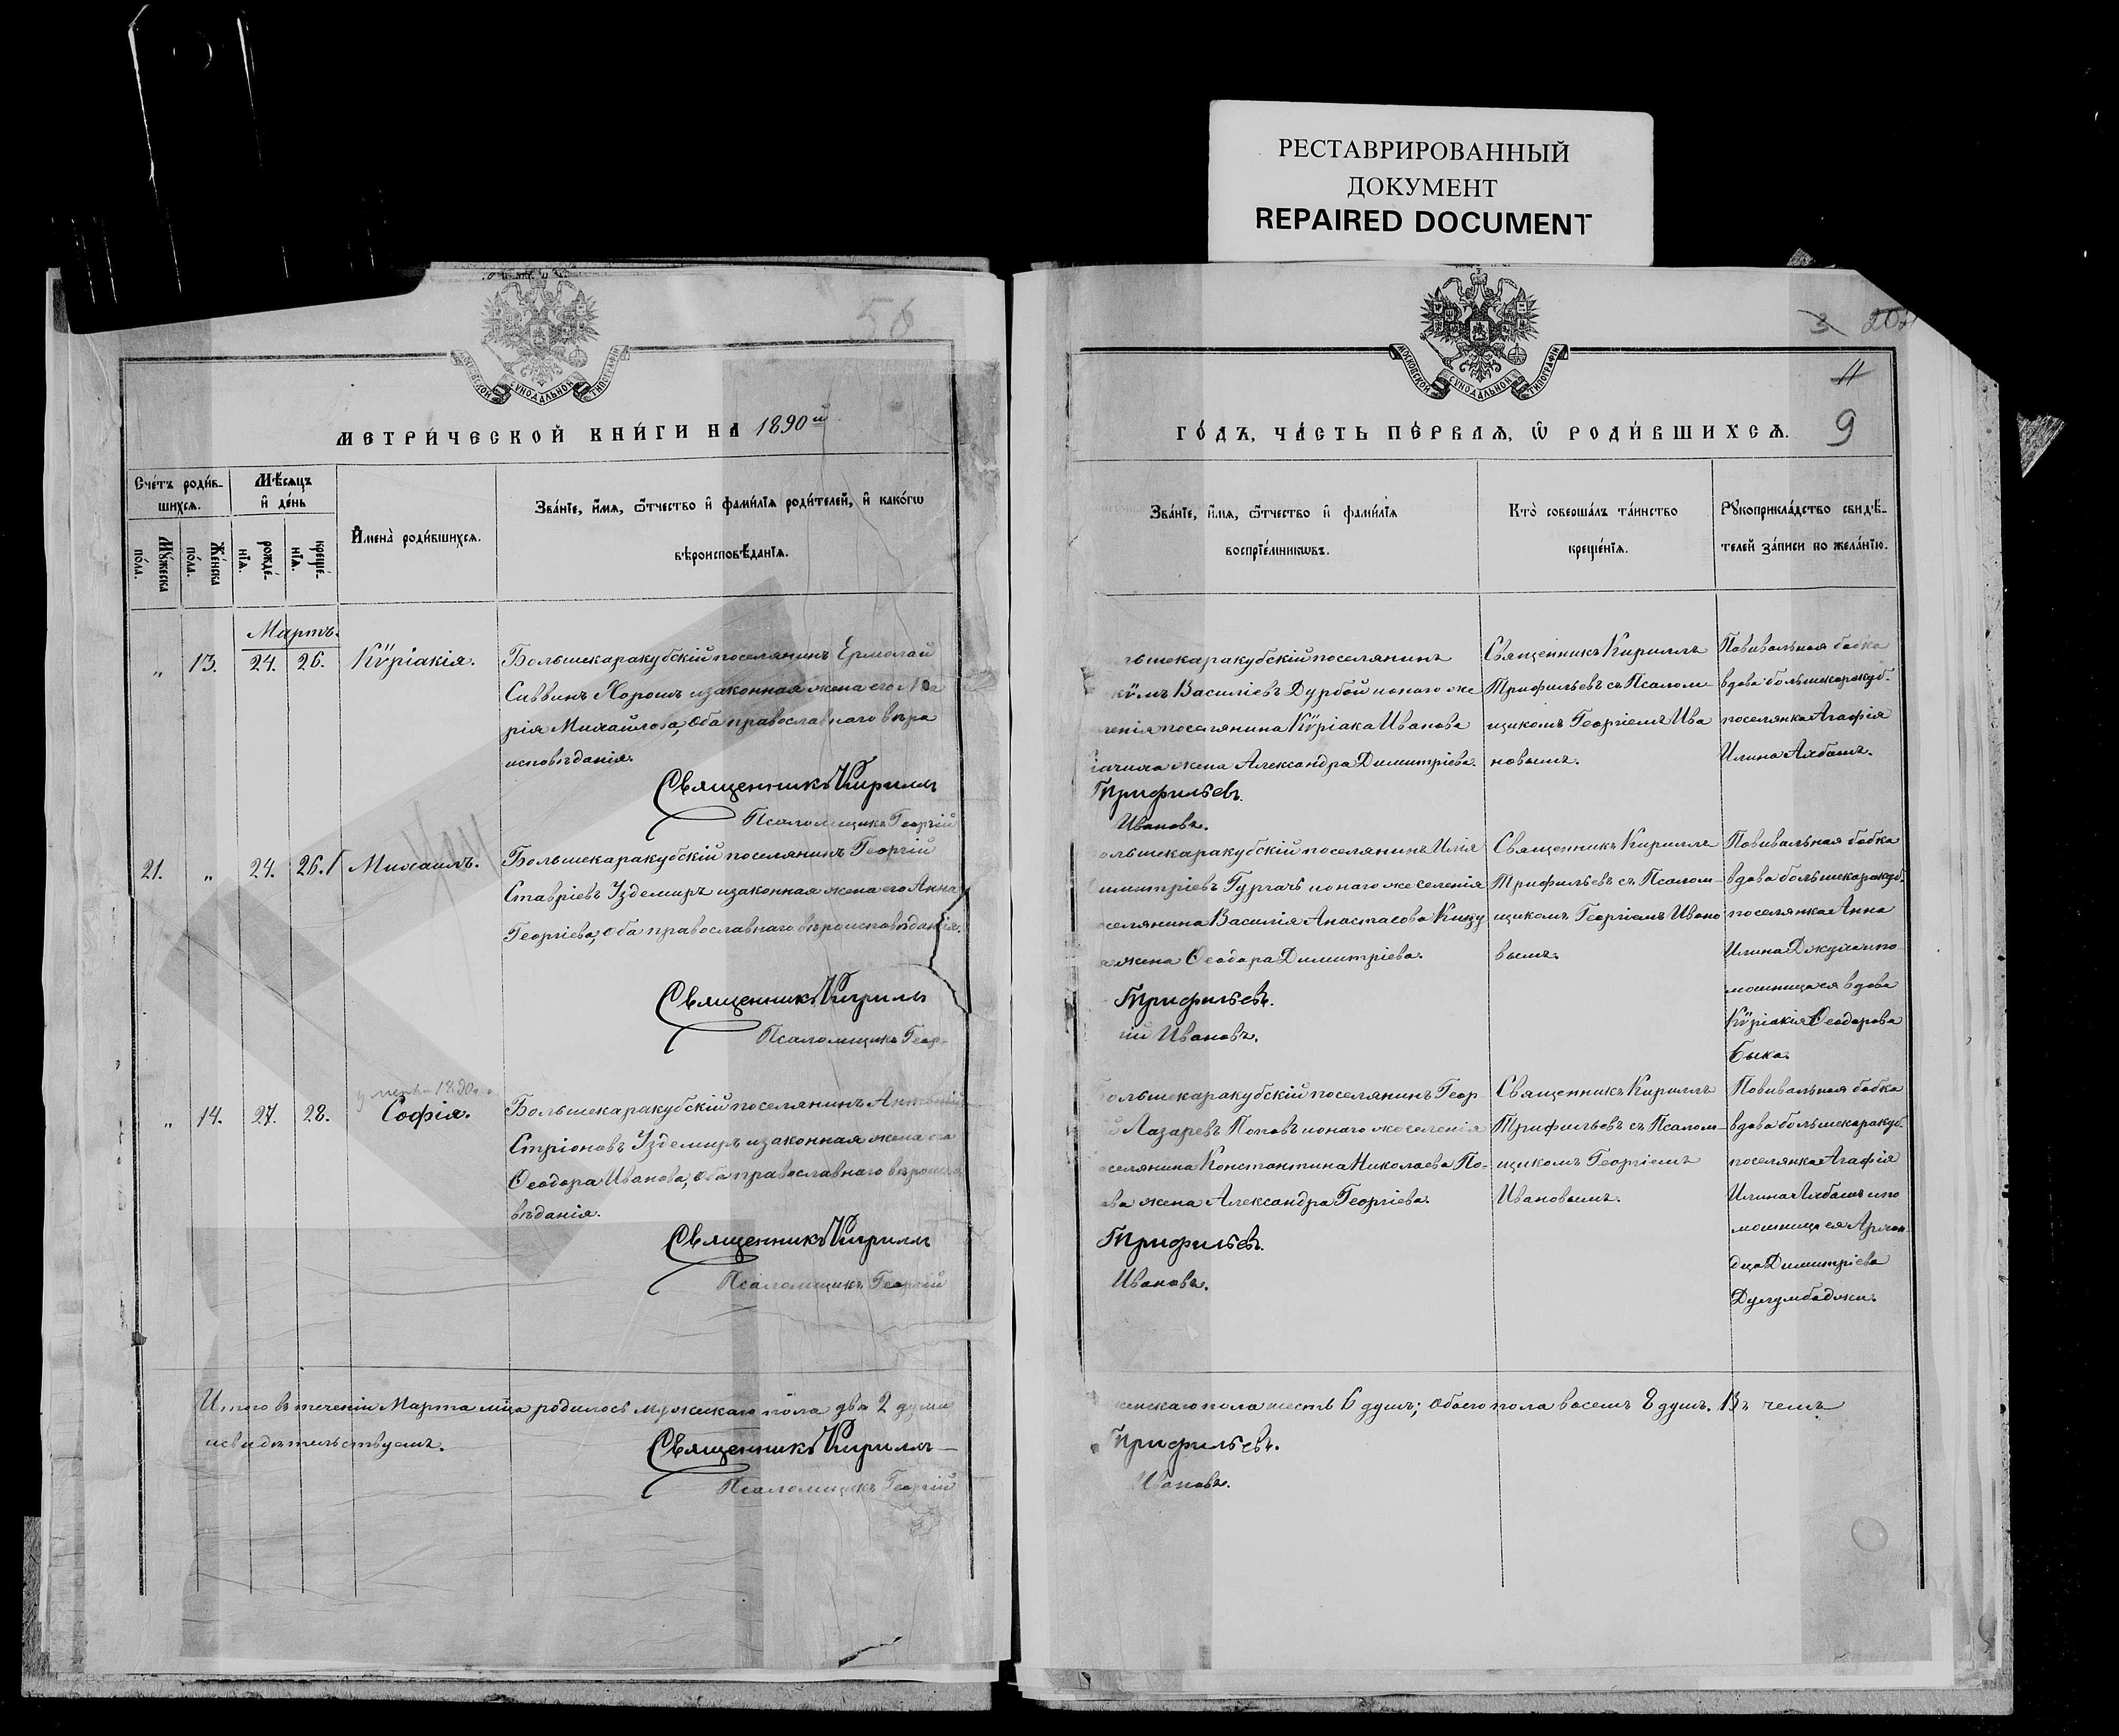 РЕСТАВРИРОВАННЫЙ
ДОКУМЕНТ
REPAIRED DOCUMENT
56
МОСКОВСКОЙ СѴНОДАЛЬНОЙ ТИПОГРАФІИ
МЕТРИ́ЧЕСКОЙ КНИ́ГИ НА 1890й
Сче́тъ роди́в-
шихсѧ.
Мѣ́сѧцъ
и҆ де́нь
Мꙋ́жеска
по́ла.
Же́нска
по́ла.
рожде́-
нїѧ.
креще́-
нїѧ.
И҆мена̀ роди́вшихсѧ.
Зва́нїе, и҆́мѧ, ѻ҆́тчество и҆ фами́лїѧ роди́телей, и҆ како́гѡ
вѣроисповѣ́данїѧ.
Мартъ.
„ 13. 24. 26. Кѵ̈ріакія.
Большекаракубскій поселянинъ Ермолай
Саввинъ Хорошъ и законная жена его Ма
рія Михайлова, оба православнаго вѣро
исповѣданія.
Священникъ Кириллъ
Псаломщикъ Георгій
21. „ 24. 26. Михаилъ.
Большекаракубскій поселянинъ Георгій
Ставріевъ Уздемиръ и законная жена его Анна
Георгіева, оба православнаго вѣроисповѣданія.
Священникъ Кириллъ
Псаломщикъ Геор-
„ 14. 27. 28. Софія.
Большекаракубскій поселянинъ
Стріоновъ Уздемиръ и законная жена его
Ѳеодора Иванова, оба православнаго вѣроиспо
вѣданія.
Священникъ Кириллъ
Псаломщикъ Георгій
Итого въ теченіи Марта мѣца родилось мужскаго пола два 2 души
и свидѣтельствуемъ.
Священникъ Кириллъ
Псаломщикъ Георгій
3
11
9
МОСКОВСКОЙ СѴНОДАЛЬНОЙ ТИПОГРАФІИ
ГО́ДЪ, ЧА́СТЬ ПЕ́РВАѦ, Ѽ РОДИ́ВШИХСѦ.
Зва́нїе, и҆́мѧ, ѻ҆́тчество и҆ фами́лїѧ
воспрїе́мникѡвъ.
Кто̀ соверша́лъ та́инство
креще́нїѧ.
Рꙋкоприкла́дство свидѣ́-
телей за́писи по жела́нїю.
льшекаракубскій поселянинъ
Василіевъ Дурбой и онаго же
ленія поселянина Кѵ̈ріака Иванова
жена Александра Димитріева.
Трифильевъ.
Ивановъ.
Священникъ Кириллъ
Трифильевъ съ Псалом-
щикомъ Георгіемъ Ива
новымъ.
Повивальная бабка
вдова большекаракуб.
поселянка Агафія
Илина Албатъ.
ольшекаракубскій поселянинъ Илія
имитріевъ Гургачъ и онаго же селенія
оселянина Василія Анастасова
а жена Ѳеодора Димитріева.
Трифильевъ.
гій Ивановъ.
Священникъ Кириллъ
Трифильевъ съ Псалом-
щикомъ Георгіемъ Ивано
вымъ.
Повивальная бабка
вдова большекаракуб.
поселянка Анна
Илина и по
мощница ея вдова
Кѵ̈ріакія Ѳеодорова
Быка.
ольшекаракубскій поселянинъ Геор
Лазаревъ Поповъ и онаго же селенія
оселянина Константина Николаева По-
ва жена Александра Георгіева.
Трифильевъ.
Ивановъ.
Священникъ Кириллъ
Трифильевъ съ Псалом-
щикомъ Георгіемъ
Ивановымъ.
Повивальная бабка
вдова большекаракуб.
поселянка Агафія
Илина Албатъ и по
мощница ея
Димитріева
Дулумбаджи.
женскаго пола шесть 6 душъ; обоего пола восемь 8 душъ. Въ чемъ
Трифильевъ.
Ивановъ.